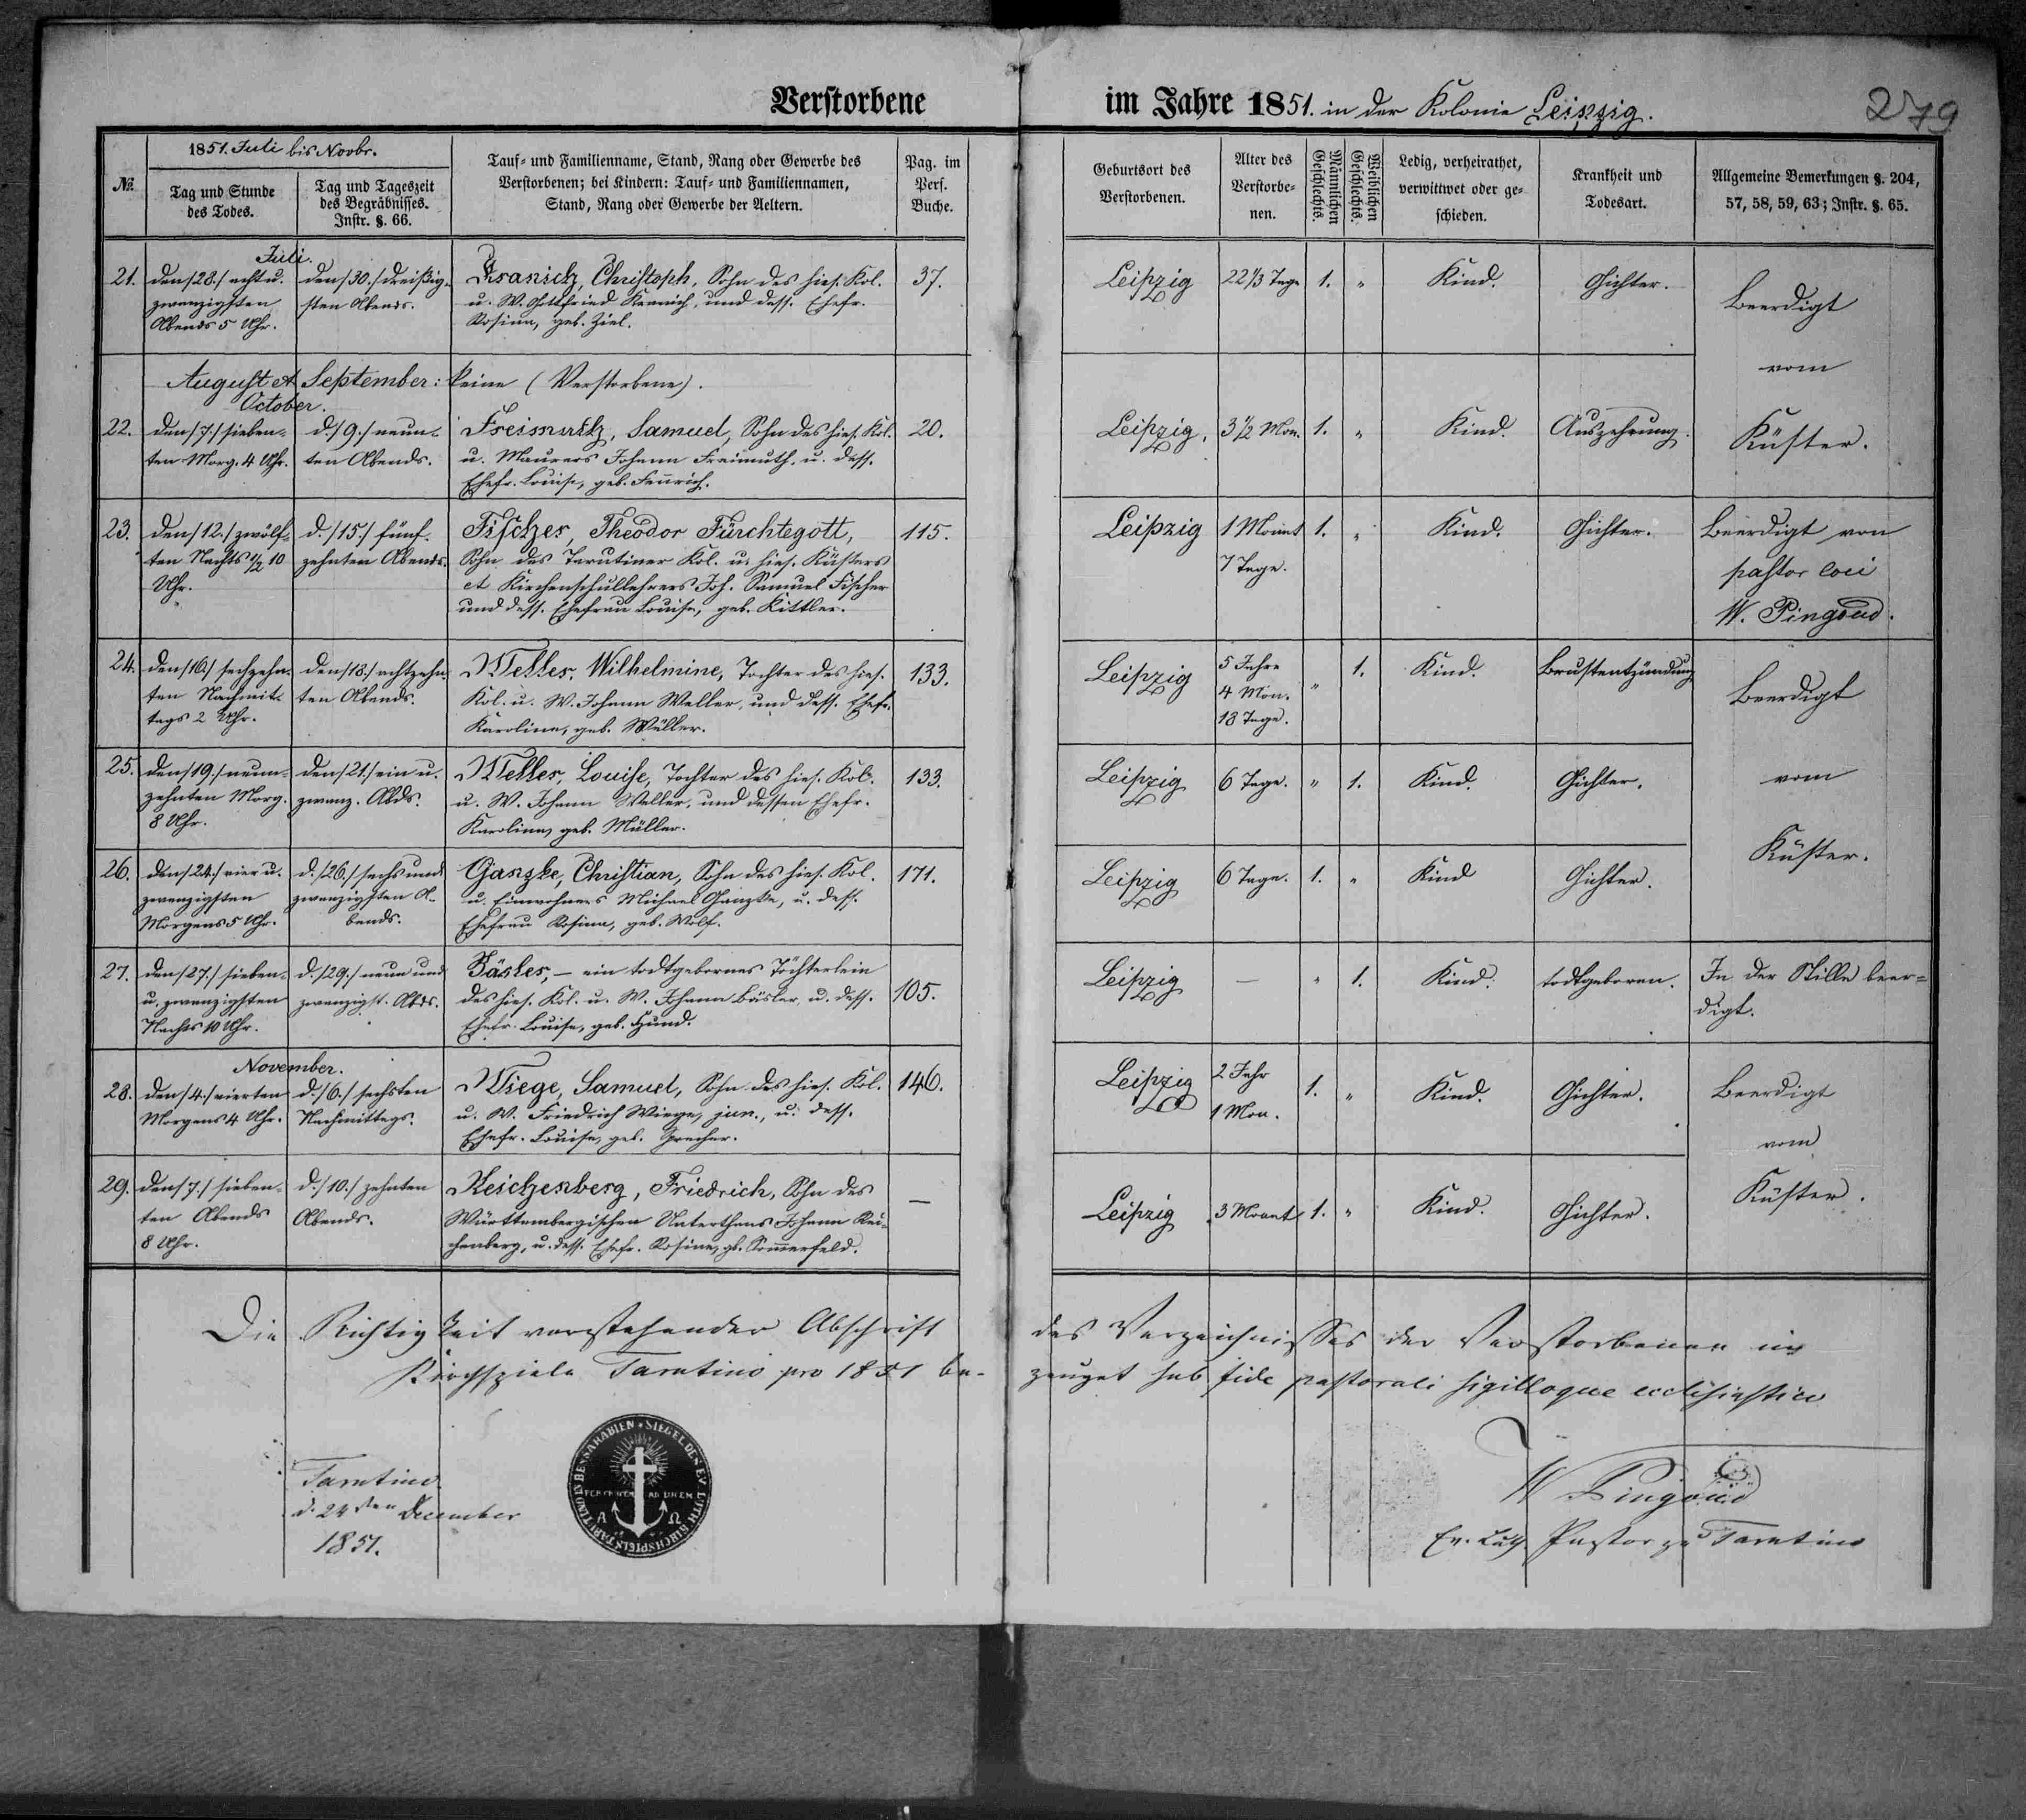 Verstorbene im Jahre 1851. in der Kolonie Leipzig.
279
№.
1851. Juli bis Novbr.
Tag und Stunde des Todes.
Tag und Tageszeit des Begräbnisses. Instr. §. 66.
Tauf- und Familienname, Stand, Rang oder Gewerbe des
Verstorbenen; bei Kindern: Tauf- und Familiennamen,
Stand, Rang oder Gewerbe der Aeltern.
Pag. im Pers. Buche.
Geburtsort des Verstorbenen.
Alter des Verstorbenen.
Männlichen Geschlechts.
Weiblichen Geschlechts.
Ledig, verheirathet, verwittwet oder geschieden.
Krankheit und Todesart.
Allgemeine Bemerkungen §. 204,
57, 58, 59, 63; Instr. §. 65.
Juli.
21. den /28./ acht u. zwanzigsten Abends 5 Uhr.
den /30./ dreißigsten Abends.
Kranich, Christoph, Sohn des hies. Kol.
u. W. Gottfried Kranich, und dess. Ehefr.
Rosina, geb. Ziel.
37.
Leipzig 22 1/3 Tage 1. „ Kind. Gichter.
Beerdigt
vom
Küster.
August et September: keine (Verstorbene).
October.
22. den /7./ siebenten Morg. 4 Uhr.
d. /9./ neunten Abends.
Freimuth, Samuel, Sohn des hies. Kol.
u. Maurers Johann Freimuth, u. dess.
Ehefr. Louise, geb. Fennrich.
20.
Leipzig, 3 1/2 Mon. 1. „ Kind. Auszehrung.
23. den /12./ zwölften Nachts 1/2 10 Uhr.
d. /15./ fünfzehnten Abends.
Fischer, Theodor Fürchtegott,
Sohn des Tarutiner Kol. u. hies. Küsters
et Kirchenschullehrers Joh. Samuel Fischer
und dess. Ehefrau Louise, geb. Kittler.
115.
Leipzig 1 Monat 7 Tage. 1. „ Kind. Gichter.
Beerdigt von
pastor loci
W. Pingoud.
24. den /16./ sechzehnten Nachmittags 2 Uhr.
den /18./ achtzehnten Abends.
Weller, Wilhelmine, Tochter des hies.
Kol. u. W. Johann Weller, und dess. Ehefr.
Karolina, geb. Müller.
133.
Leipzig 5 Jahre 4 Mon. 18 Tage. „ 1. Kind. Brustentzündung
Beerdigt
vom
Küster.
25. den /19./ neunzehnten Morg. 8 Uhr.
den /21./ ein u. zwanz. Abds.
Weller, Louise, Tochter des hies. Kol.
u. W. Johann Weller, und dessen Ehefr.
Karolina, geb. Müller.
133.
Leipzig 6 Tage. „ 1. Kind. Gichter.
26. den /24./ vier u. zwanzigsten Morgens 5 Uhr.
d. /26./ sechs und zwanzigsten Abends.
Ganzke, Christian, Sohn des hies. Kol.
u. Einwohners Michael Ganzke, u. dess.
Ehefrau Rosina, geb. Wolf.
171.
Leipzig 6 Tage. 1. „ Kind Gichter.
27. den /27./ sieben u. zwanzigsten Nachts 10 Uhr.
d. /29./ neun und zwanzigst. Abds.
Bäsler, – ein todtgebornes Töchterlein
des hies. Kol. u. W. Johann Bäsler, u. dess.
Ehefr. Louise, geb. Hund.
105.
Leipzig — „ 1. Kind. todtgeboren.
In der Stille beerdigt.
November.
28. den /4./ vierten Morgens 4 Uhr.
d. /6./ sechsten Nachmittags.
Wiege, Samuel, Sohn des hies. Kol.
u. W. Friedrich Wiege, jun., u. dess.
Ehefr. Louise, geb. Sprecher.
146.
Leipzig 2 Jahr 1 Mon. 1. „ Kind. Gichter.
Beerdigt
vom
Küster.
29. den /7./ siebenten Abends 8 Uhr.
d. /10./ zehnten Abends.
Reichenberg, Friedrich, Sohn des
Württembergischen Unterthans Johann Reichenberg, u. dess. Ehefr. Rosina, gb. Sommerfeld.
—
Leipzig 3 Monat 1. „ Kind. Gichter.
Die Richtigkeit vorstehender Abschrift des Verzeichnisses der Verstorbenen im
Kirchspiele Tarutino pro 1851 bezeuget sub fide pastorali sigilloque ecclesiastico
Tarutino
d. 24sten December
1851.
SIEGEL DES EV. LUTH. KIRCHSPIELS TARUTINO IN BESSARABIEN
PER CRUCEM AD LUCEM
Α Ω
W Pingoud
Ev. Luth. Pastor zu Tarutino